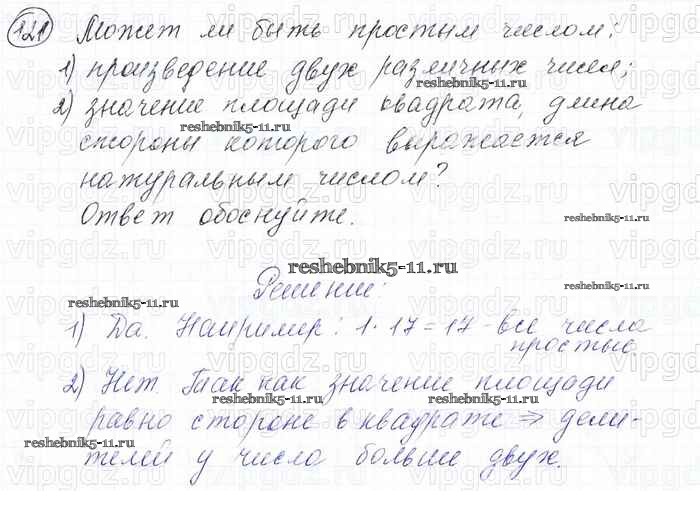 121 Может ли быть простым числом:
1) произведение двух различных чисел;
2) значение площади квадрата, длина
стороны которого выражается
натуральным числом?
Ответ обоснуйте.
Решение:
1) Да. Например: 1 · 17 = 17 - все числа
простые.
2) Нет. Так как значение площади
равно стороне в квадрате ⇒ дели-
телей у числа больше двух.
reshebnik5-11.ru
reshebnik5-11.ru
reshebnik5-11.ru
reshebnik5-11.ru
reshebnik5-11.ru
reshebnik5-11.ru
reshebnik5-11.ru
reshebnik5-11.ru
reshebnik5-11.ru
vipgdz.ru